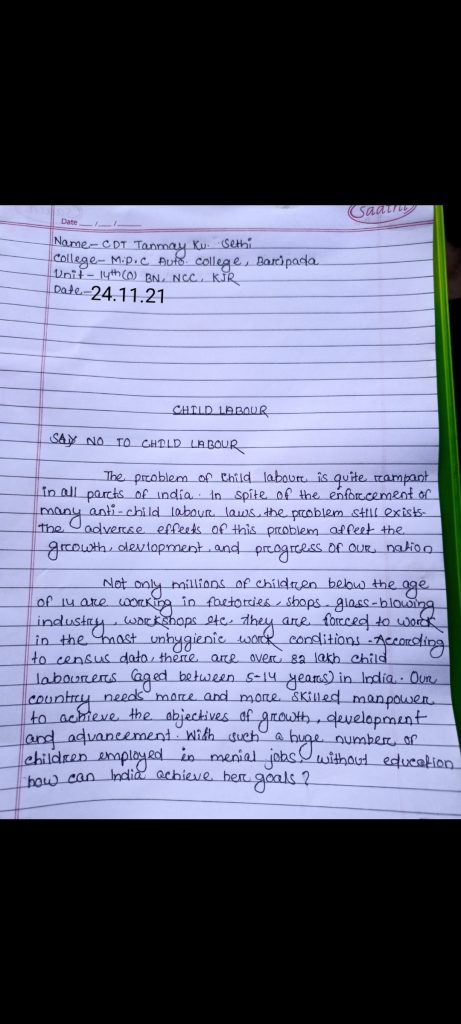 Saathi
Date __/__/__
Name- CDT Tanmay Ku. Sethi
College- M.P.C Auto. College, Baripada
Unit - 14th (O) BN, NCC, KJR
Date-24.11.21
CHILD LABOUR
SAY NO TO CHILD LABOUR
The problem of child labour is quite rampant
in all parts of india. In spite of the enforcement of
many anti-child labour laws, the problem still exists.
The adverse effects of this problem affect the
growth, devlopment, and progress of our nation
Not only millions of children below the age
of 14 are working in factories, shops, glass-blowing
industry, workshops etc. They are forced to work
in the most unhygienic work conditions. According
to census data, there are over 82 lakh child
labourers (aged between 5-14 years) in India. Our
country needs more and more skilled manpower
to achieve the objectives of growth, development
and advancement. With such a huge number of
children employed in menial jobs without education
how can India achieve her goals?